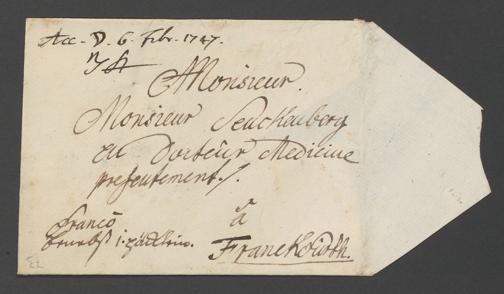 Acc. D. 6. Febr. 1747.
Monsieur.
Monsieur Senckenberg
en Docteur Medicine
presentement.
à
Franckfurth.
Franco